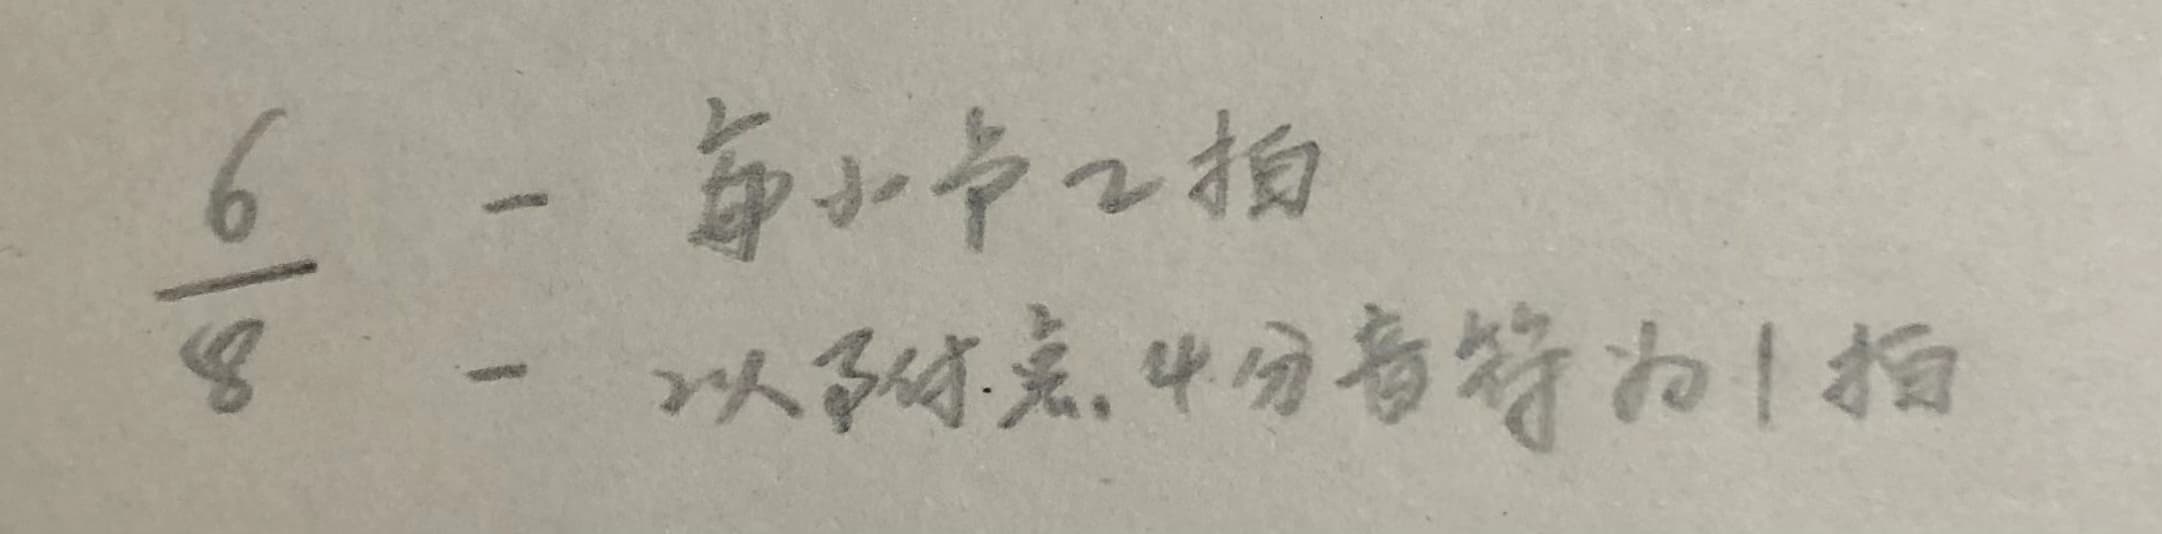 6/8
- 每小节2拍
- 以附点4分音符为1拍